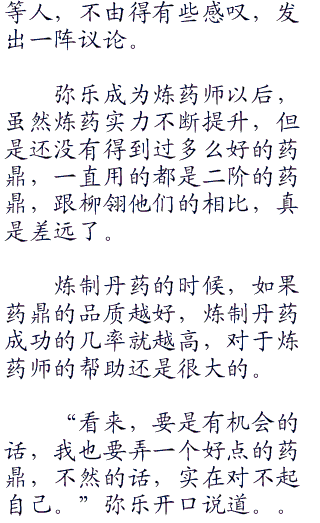 等人，不由得有些感叹，发
出一阵议论。
弥乐成为炼药师以后，
虽然炼药实力不断提升，但
是还没有得到过多么好的药
鼎，一直用的都是二阶的药
鼎，跟柳翎他们的相比，真
是差远了。
炼制丹药的时候，如果
药鼎的品质越好，炼制丹药
成功的几率就越高，对于炼
药师的帮助还是很大的。
“看来，要是有机会的
话，我也要弄一个好点的药
鼎，不然的话，实在对不起
自己。”弥乐开口说道。。